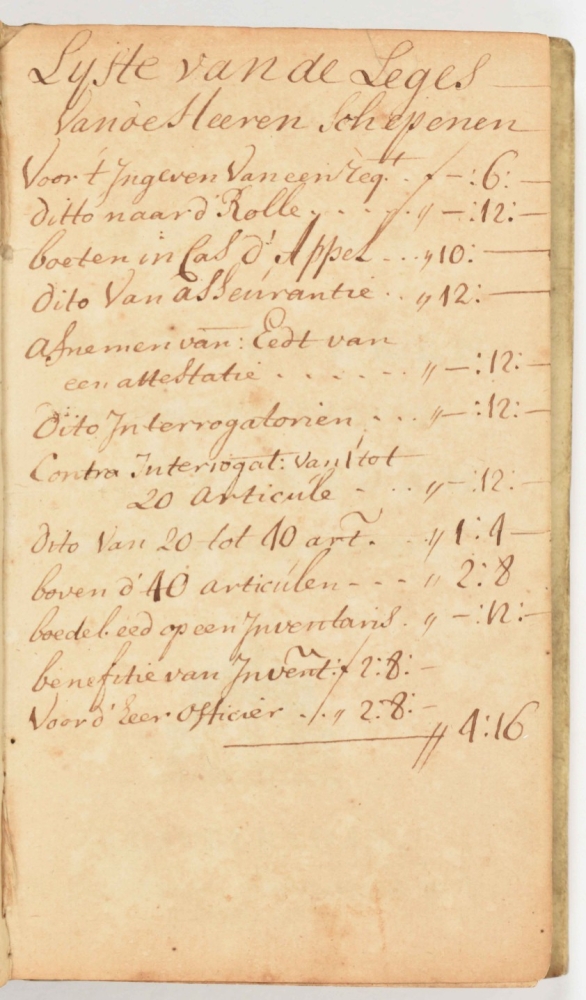 Lyste van de Leges
Van de Heeren Schepenen
Voor 't Ingeven Van een req.t . ƒ – : 6 : –
Ditto naar d' Rolle . . . „ – : 12 : –
boeten in Cas d' Appel . . . „ 10 : –
Dito Van asseurantie . . „ 12 : –
Afnemen van : Eedt van
een attestatie . . . . . . „ – : 12 : –
Dito Interrogatorien . . . „ – : 12 : –
Contra Interrogat : van 1 tot
20 articule - . . „ – : 12 : –
Dito Van 20 tot 40 art. . „ 1 : 4 –
boven d' 40 articulen - - - „ 2 : 8
boedel eed op een Inventaris . „ – : 12 : –
benefitie van Invent : ƒ 2 : 8 : –
Voor d' Heer Officier . . „ 2 : 8 : –
„ 4 : 16